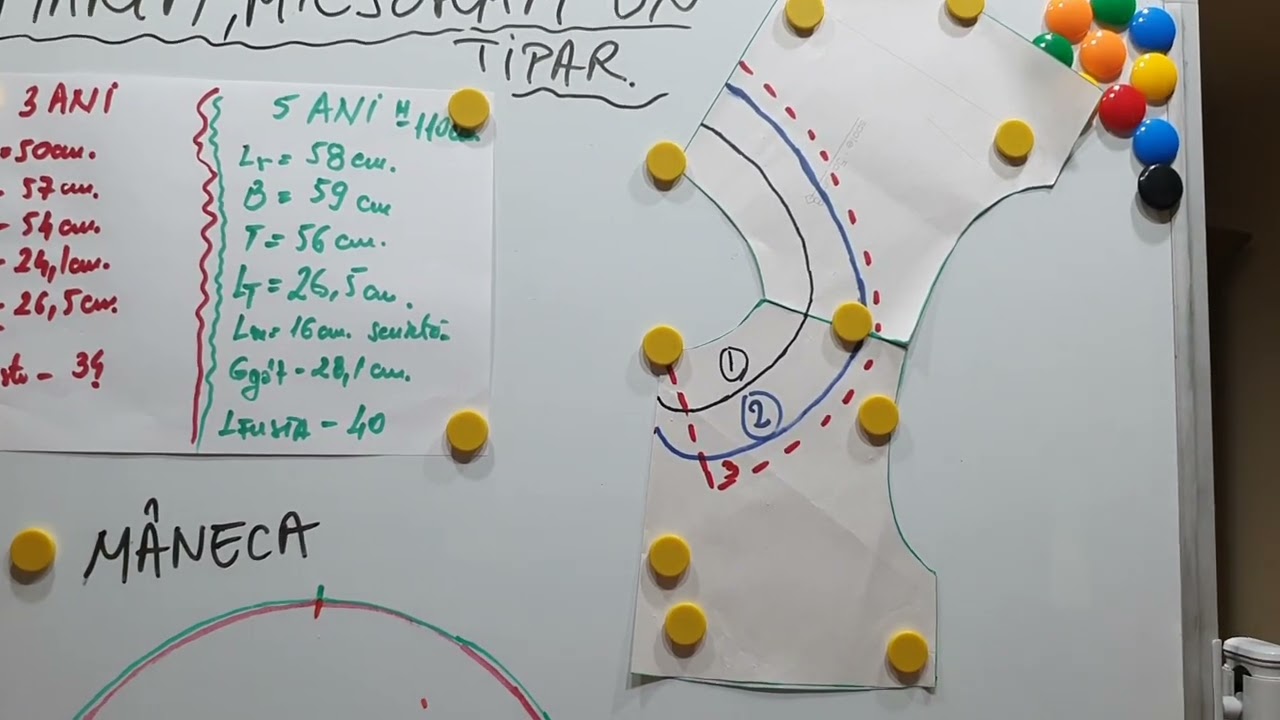 TIPAR.
3 ANI
=50cm.
- 57 cm.
- 54 cm.
- 24,1cm.
- 26,5 cm.
- 34
5 ANI H=110cm.
Lr= 58 cm.
B = 59 cm
T= 56 cm.
LT= 26,5 cm.
Lm= 16 cm.
Ggât - 28,1 cm.
LFUSTA - 40
1
2
3
MÂNECA